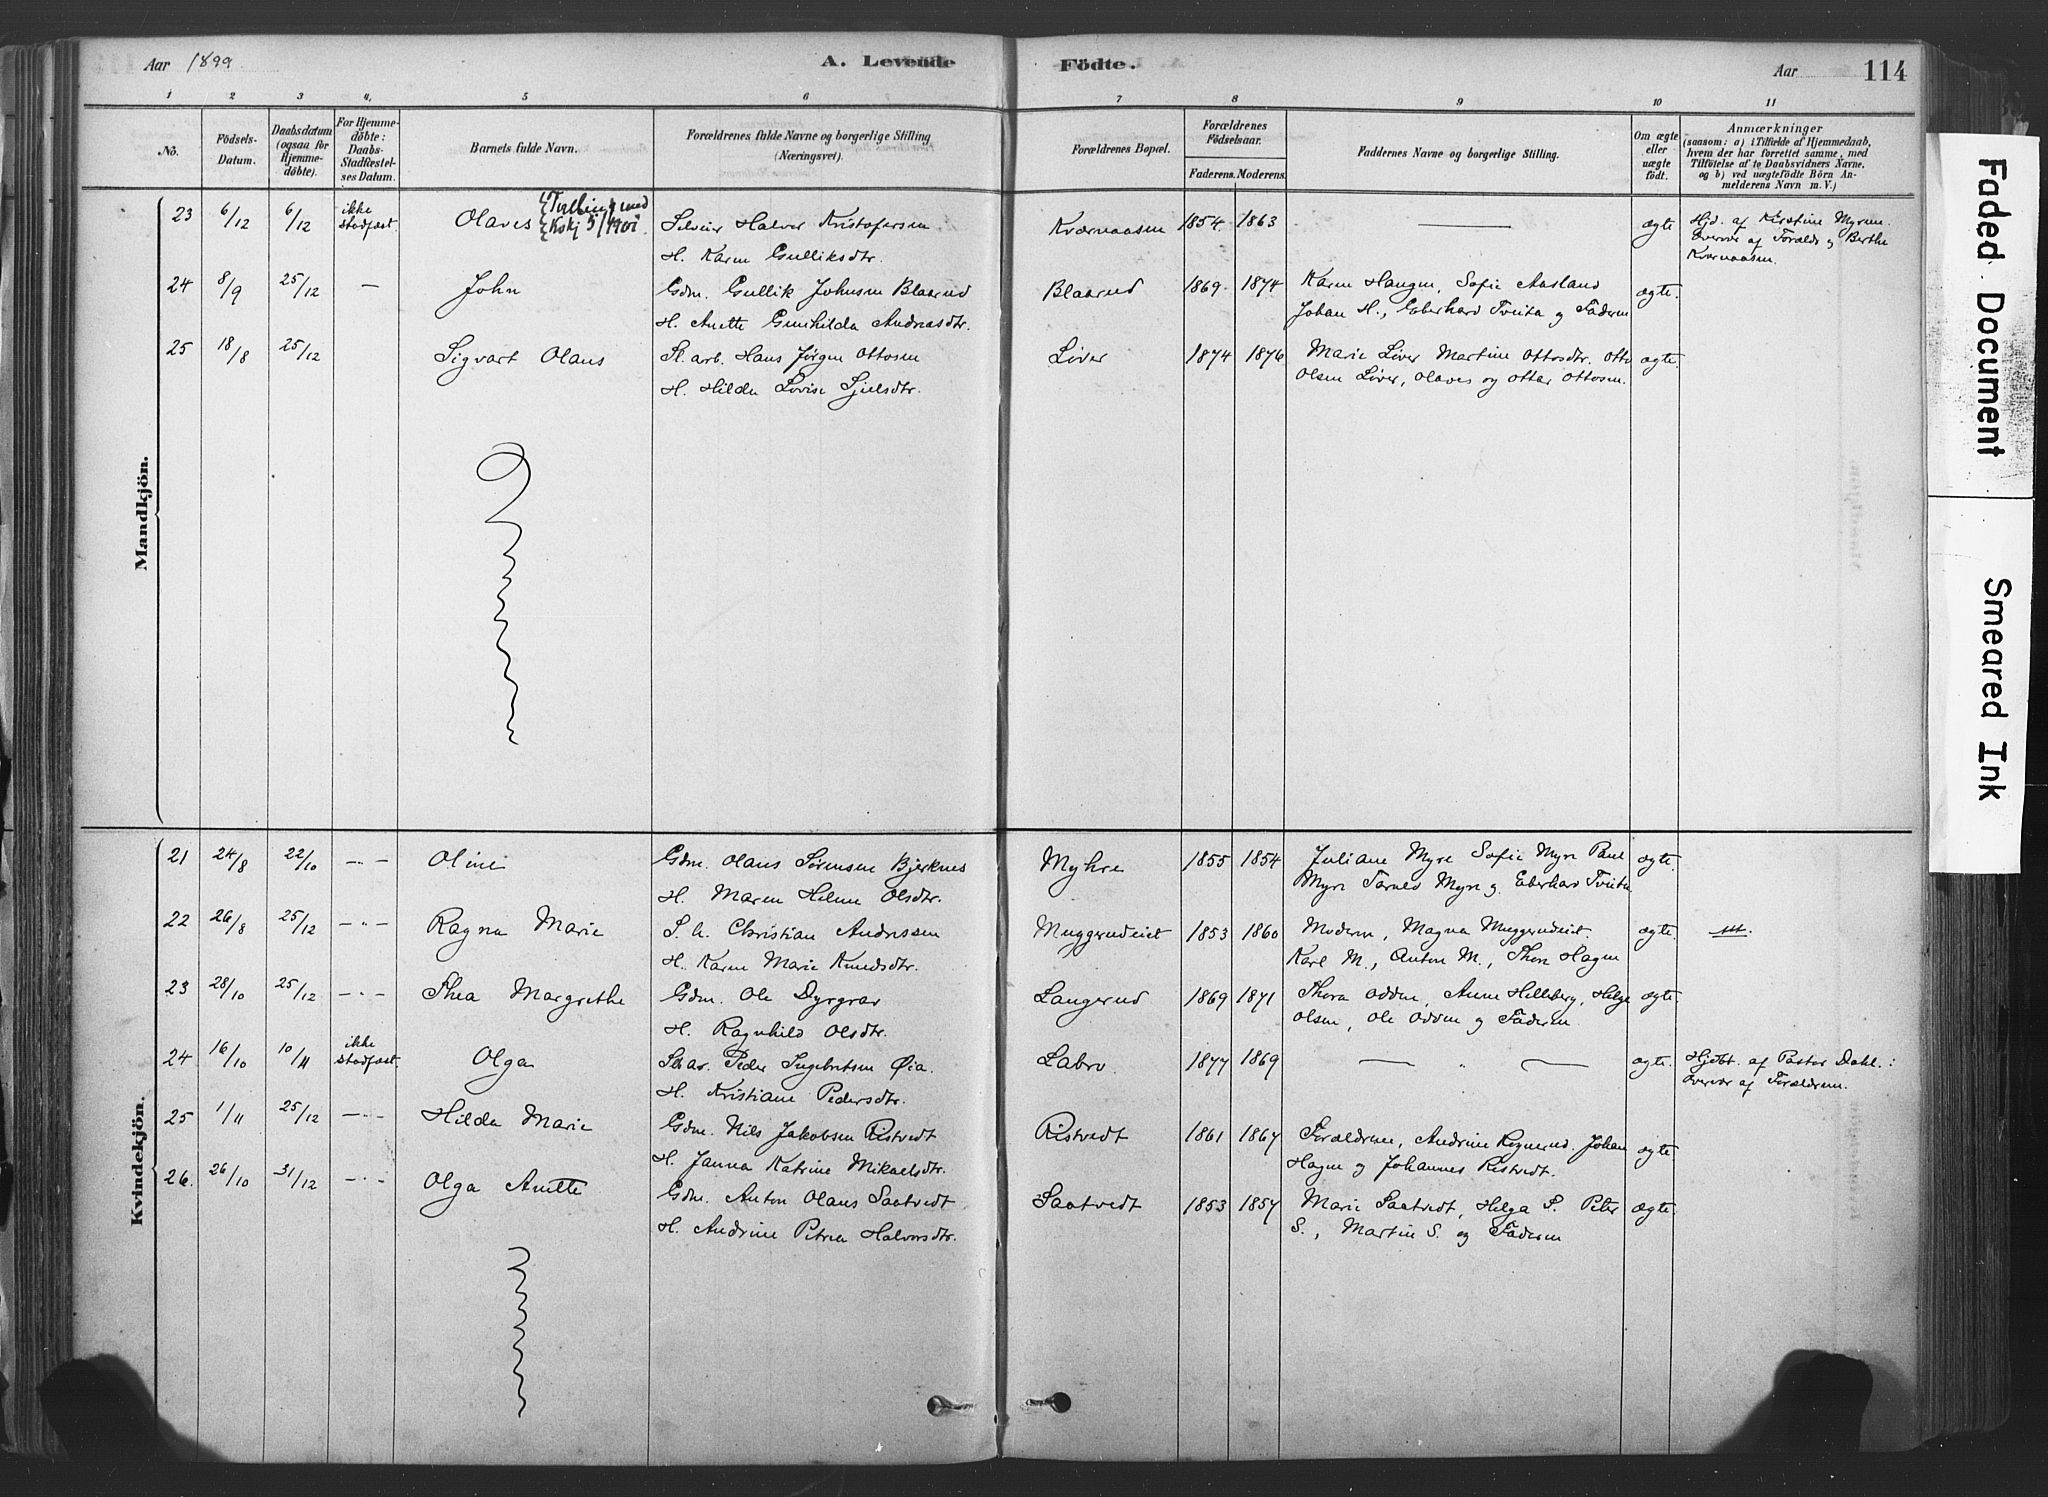 Aar 1899
A. Levende
Födte.
Aar
114
1 2 3 4. 5 6 7 8 9 10 11
No.
Födsels-
Datum.
Daabsdatum
(ogsaa for
Hjemme-
döbte).
For Hjemme-
döbte:
Daabs-
Stadfæstel-
ses Datum.
Barnets fulde Navn.
Forældrenes fulde Navne og borgerlige Stilling
(Næringsvei).
Forældrenes Bopæl.
Forældrenes
Födselsaar.
Faderens. Moderens.
Faddernes Navne og borgerlige Stilling.
Om ægte
eller
uægte
födt.
Anmærkninger
(saasom: a) i Tilfælde af Hjemmedaab,
hvem der har forrettet samme, med
Tilföielse af to Daabsvidners Navne,
og b) ved uægtefödte Börn An-
melderens Navn m. V.)
Mandkjön.
23 6/12 6/12 ikke stadfæst. Olaves 1854 1863 ægte
Halvor Kristofersen
H. Karen Gulliksdtr.
24 8/9 25/12 — John Gdm. Gullik Johnsen Blaarud Blaarud 1869 1874 Karen Haugen, Sofie Aasland ægte.
H. Anette Gunhilda Andreasdtr. Johan H., Eberhard Tveita og Faderen
25 18/8 25/12 Sigvart Olaus Sl. arb. Hans Jørgen Ottosen Løver 1874 1876 Marie Løver Martine Ottosdtr. Otto ægte.
H. Hilda Lovise Olsen Løver, Olaves og Otter Ottosen.
Kvindekjön.
21 24/8 22/10 —"— Oline Gdm. Olaus Sørensen Bjerknes Myhre 1855 1854 Juliane Myre Sofie Myre Paul ægte.
H. Maren Helene Olsdtr. Myre Myre og Eberhard Tveita
22 26/8 25/12 —"— Ragna Marie S. a. Christian Andressen Muggerudeiet 1853 1860 Moderen, Magna Muggerudeiet. ægte.
H. Karen Marie Knudsdtr. Karl M., Anton M., Thor Hagen
23 28/10 25/12 —"— Thea Margrethe Gdm. Ole Dyrgrav Langerud 1869 1871 Thora Odden, Anne Helleberg, Helge ægte.
H. Ragnhild Olsdtr. Olsen, Ole Odden og Faderen.
24 16/10 10/11 ikke stadfæst. Olga Peder Ingebretsen Øia. Labro 1877 1869 — " — ægte. Hjdbt. af Pastor Dahl. :
H. Kristiane Pedersdtr. Overvær af Forældrene.
25 1/11 25/12 —"— Hilda Marie Gdm. Nils Jakobsen Ristvedt Ristvedt 1861 1867 Forældrene, Andrine Rognerud, Johan ægte.
H. Janna Katrine Mikaelsdtr. Hagen og Johannes Ristvedt.
26. 26/10 31/12 —"— Olga Anette Gdm. Anton Olaus Saatvedt Saatvedt 1853 1857 Marie Saatvedt, Helga S. Peter ægte.
H. Andrine Petrea Halvorsdtr. S., Martin S. og Faderen
Faded Document
Smeared Ink